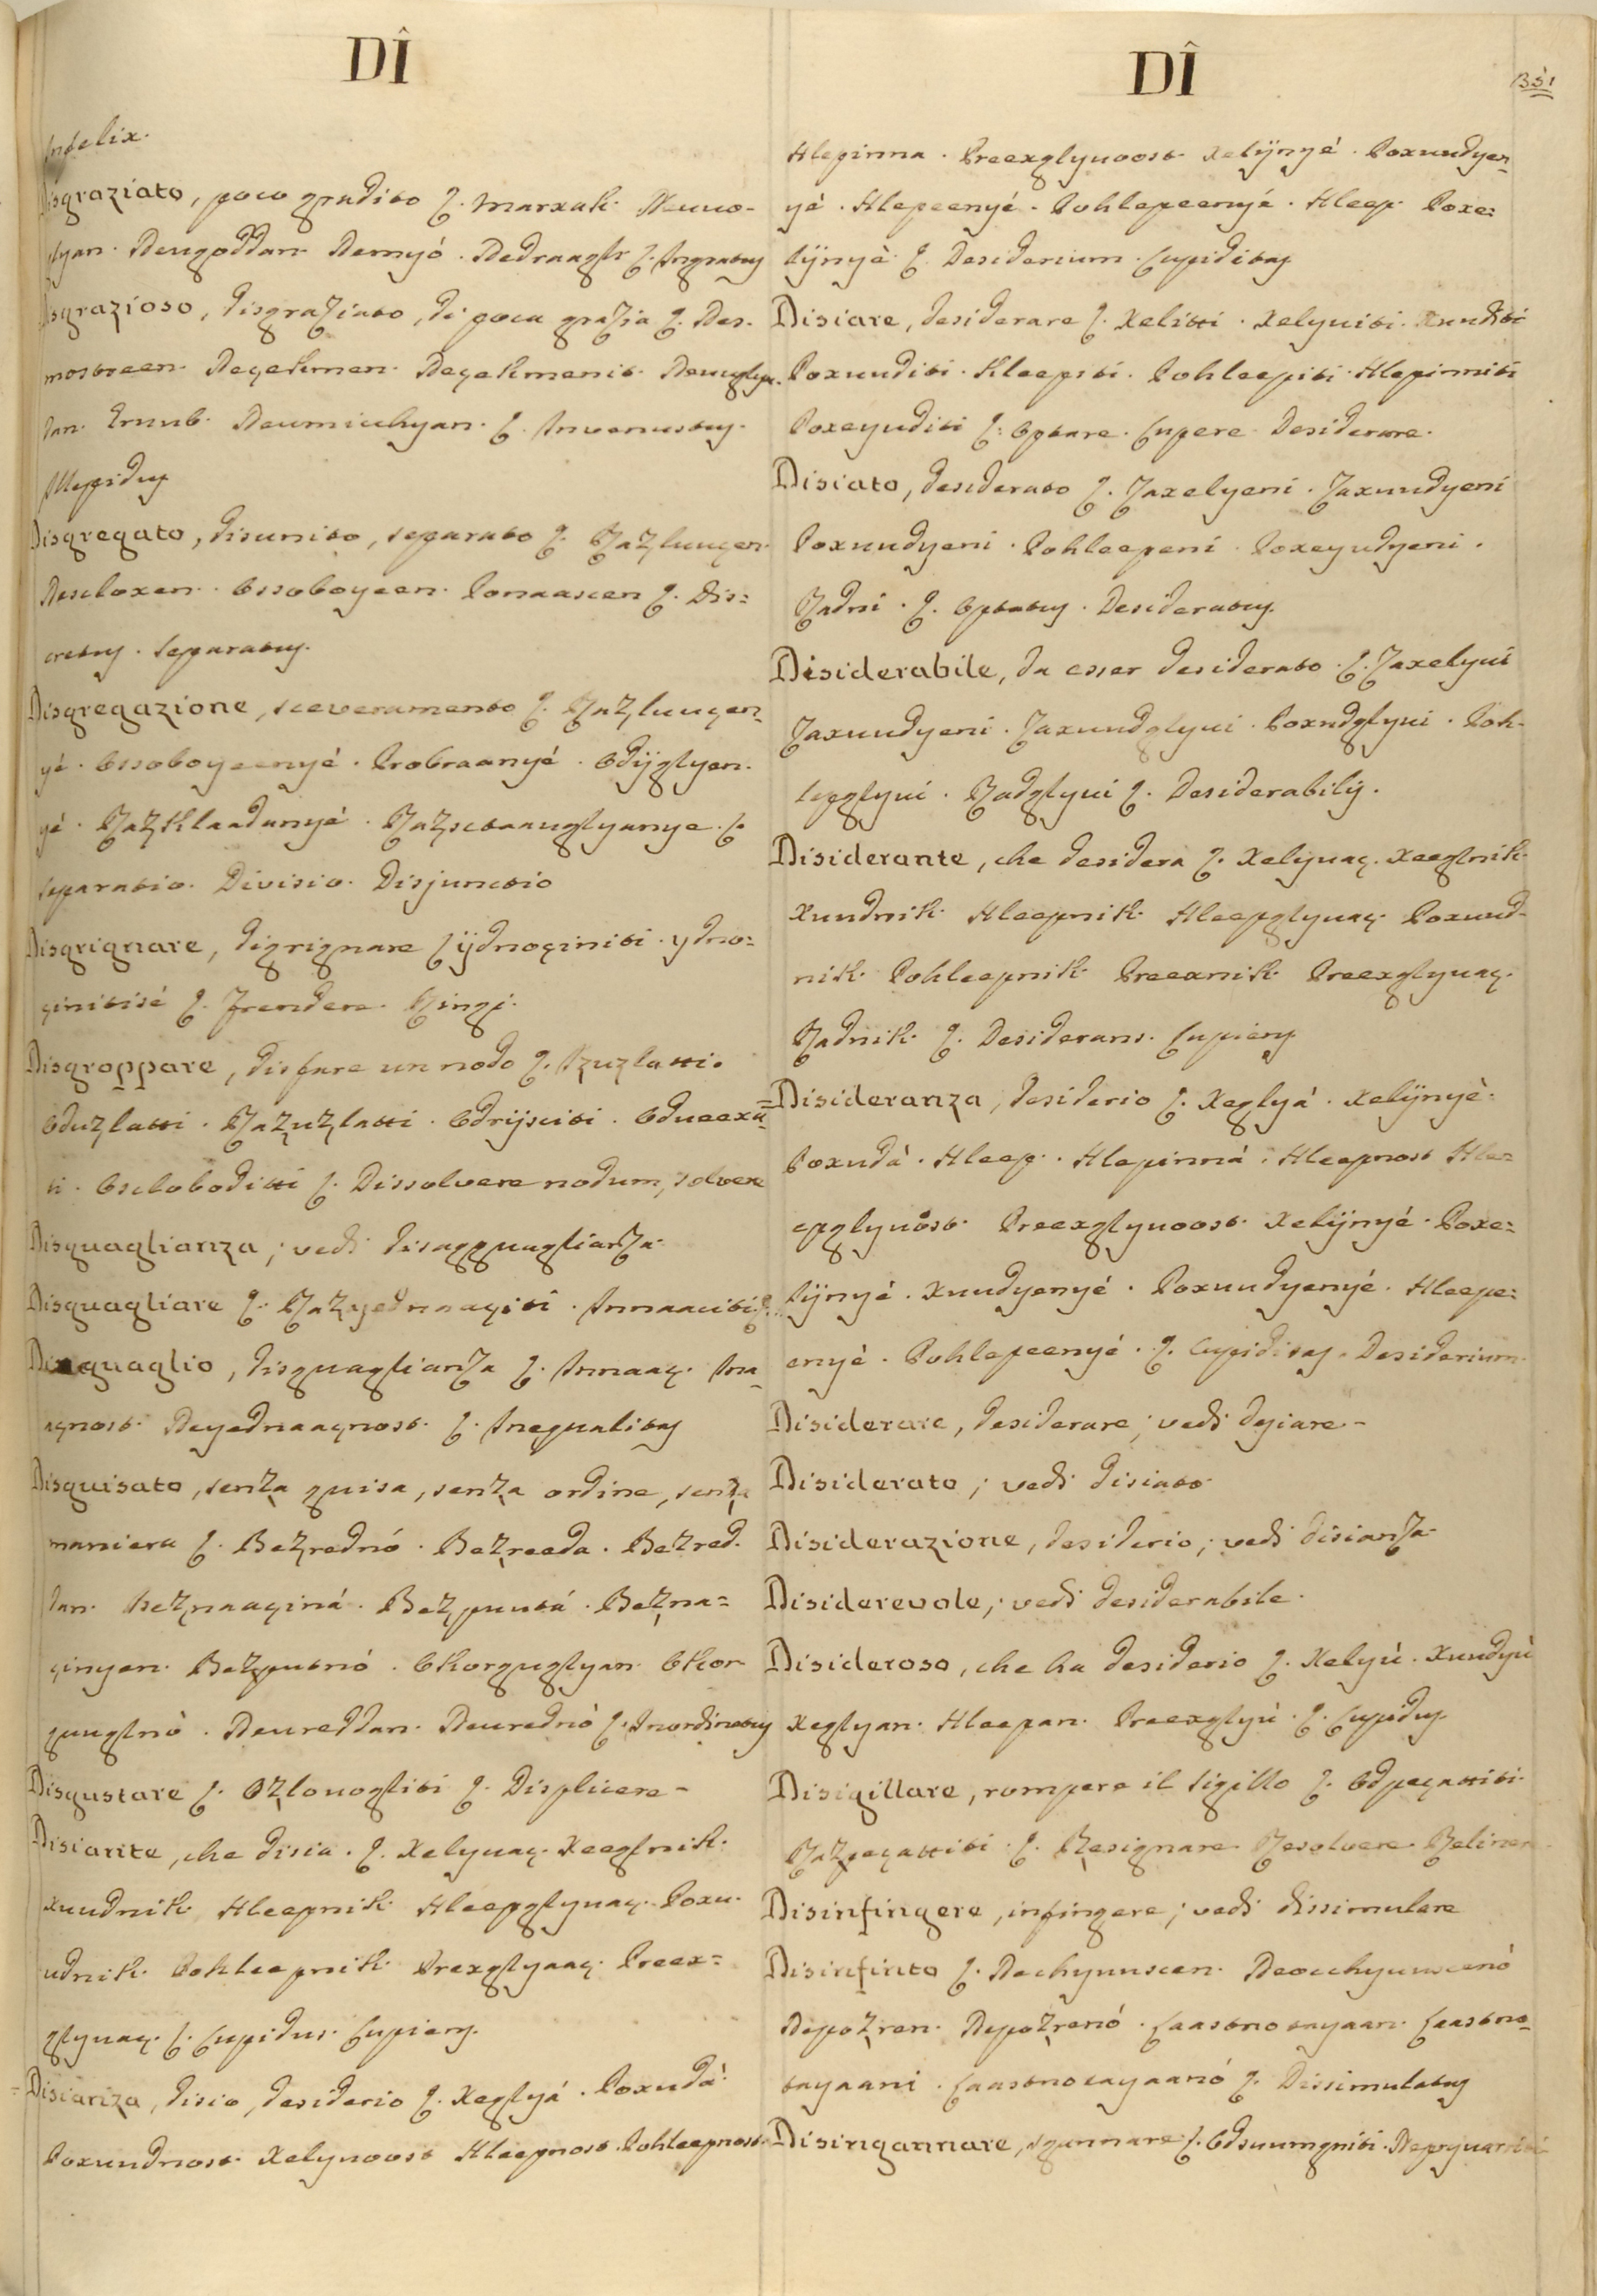 DÎ
Infelix.
Disgraziato, poco gradito ζ. Marxak. Neuuo-
glyan. Neugoddan. Nemyó. Nedraaghr ζ. Ingratus
Disgrazioso, disgraziato, di poca grazia ζ. Nes-
mostreen. Neçekmen. Neçekmenit.
dan. Neumichyan. ζ. Invenustus.
Illepidus
Disgregato, disunito, separato ζ. Razluuçen.
Nescloxen. Ossoboyeen. Ponaascen ζ. Dis=
cretus. Separatus.
Disgregazione, sceveramento ζ. Razluuçen-
yé. Ossoboyeenyé. Probraanyé. Odijglyen-
yé. Razklaadanyé. Razstaauglyanye. ζ.
Separatio. Divisio. Disjunctio
Disgrignare, digrignare ζ ijdnoçiniti. ydno=
çinitisé ζ. Frendere. Ringi.
Disgroppare, disfare un nodo ζ. Izuzlatti.
Oduzlatti. Razuzlatti. Odrijsciti. Odueexa=
ti. Oscloboditti ζ. Dissolvere nodum, solvere
Disguaglianza; vedi disagguaglianza.
Disguagliare ζ. Razyednaaçiti. Innaaciti ζ.
Disguaglio, disguaglianza ζ. Innaaç. Ina-
açnost. Neyednaaçnost. ζ. Inequalitas
Disguisato, senza guisa, senza ordine, senza
maniera ζ. Bezrednó. Bezreeda. Bezred-
dan. Beznaaçiná. Bezpuutá. Bezna=
çinyen. Bezputnó. Okorguglyan. Okor
guuglnò. Neureddan. Neurednó ζ. Inordinatus
Disgustare ζ. Ozlouogliti ζ. Displicere -
Disiante, che disia. ζ. Xelyuaç. Xeeglnik.
xuudnik. Hleepnik. Hleepglyuaç. Poxu-
udnik. Pohleepnik. Prexglyuaç. Preex=
glyuaç. ζ. Cupidus. Cupiens.
Disianza, disio, desiderio ζ. Xeglyá. Poxudá.
Poxuudnost. Xelyuoost Hleepnost. Pohleepnost.
DÎ
351
Hlepinna. Preexglyuoost. Xelijnyé. Poxuudyen-
yé. Hlepeenyé. Pohlepeenyé. Hleep. Poxe=
lijnyè ζ. Desiderium. Cupiditas
Disiare, desiderare ζ. Xelitti. Xelyuiti. Xuuditi
Poxuuditi. Hleepiti. Pohleepiti. Hlepinniti
Poxeyuditi ζ. Optare. Cupere. Desiderare.
Disiato, desiderato ζ. Zaxelyeni. Zaxuudyeni
Poxuudyeni. Pohleepeni. Poxeyudyeni.
Radni. ζ. Optatus. Desideratus.
Disiderabile, da esser desiderato. ζ. Zaxelyui
Zaxuudyeni. Zaxuudglyui. Poxudglyui. Poh-
lepglyui. Radglyui ζ. Desiderabilis.
Disiderante, che desidera ζ. Xelyuaç. Xeeglnik.
Xuudnik. Hleepnik. Hleepglyuaç. Poxuud-
nik. Pohleepnik. Preexnik. Preexglyuaç.
Radnik. ζ. Desiderans. Cupiens
Disideranza, desiderio ζ. Xeglyá. Xelijnyè.
Poxudà. Hleep. Hlepinná. Hleepnost Hle=
epglyuost. Preexglyuoost. Xelijnyé. Poxe=
lijnyé. Xuudyenyé. Poxuudyenyé. Hleepe=
enyé. Pohlepeenyé. ζ. Cupiditas. Desiderium.
Disiderare, desiderare; vedi dysiare -
Disiderato; vedi disiato.
Disiderazione, desiderio; vedi disianza.
Disiderevole; vedi desiderabile.
Disideroso, che ha desiderio ζ. Xelyù. Xuudyù
Xeglyan. Hleepan. Preexglyù. ζ. Cupidus.
Disigillare, rompere il sigillo ζ. Odpeçattiti.
Razpeçattiti. ζ. Resignare. Resolvere. Reliner
Disinfingere, infingere; vedi dissimulare
Disinfinto ζ. Nechyuuscen. Neocchyuuscenó
Nepozren. Nepozrenó. Laastnotayaan. Laastno-
tayaani. Laastnotayaanó ζ. Dissimulatus
Disingannare, sgannare ζ. Odsuumgniti.